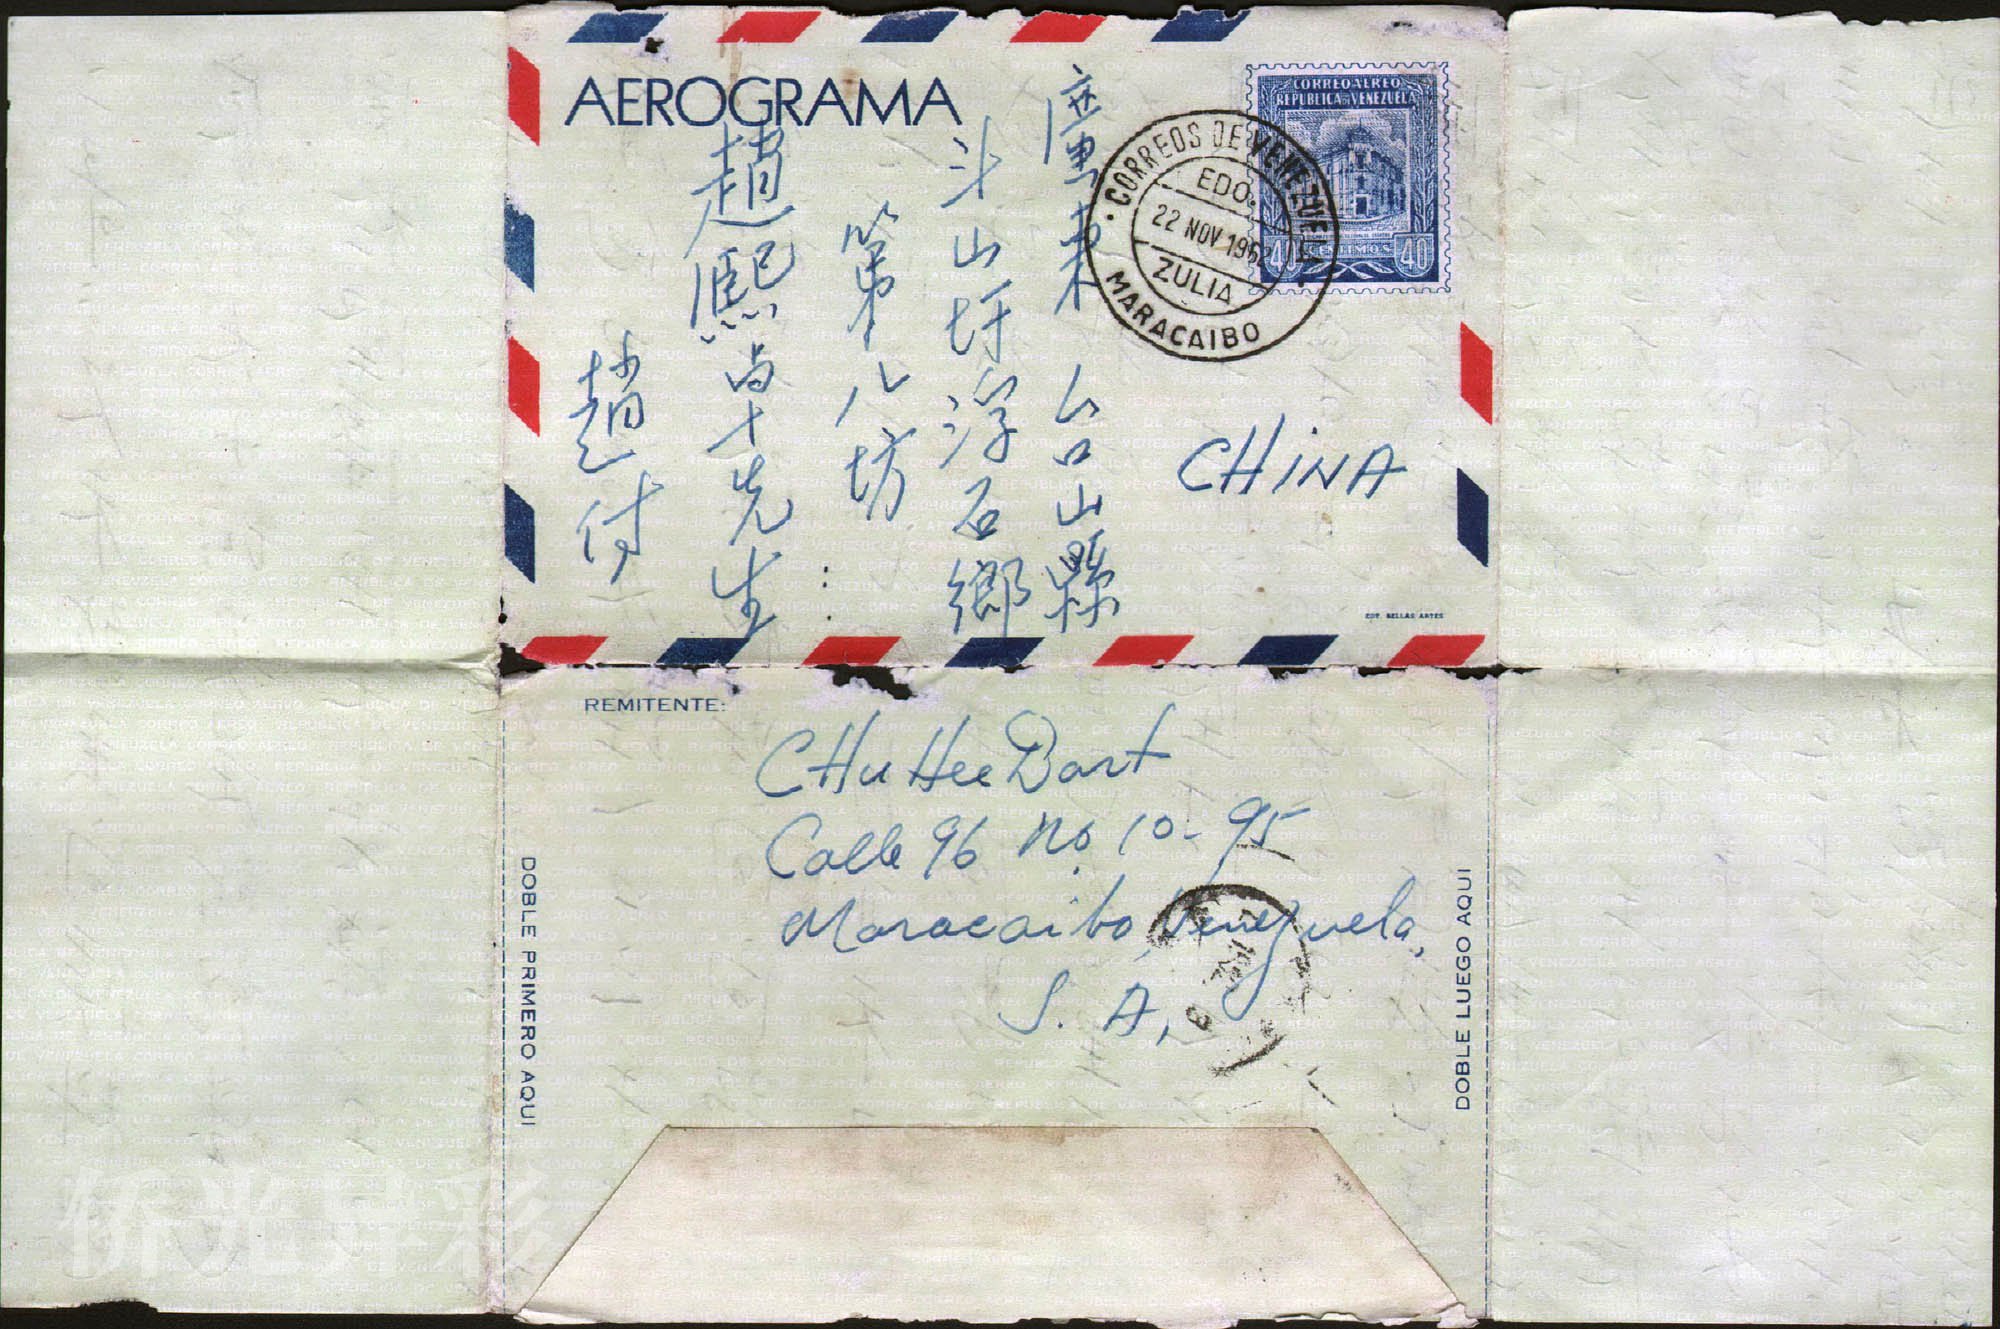 AEROGRAMA
CORREO AEREO
REPUBLICA DE VENEZUELA
40 CENTIMOS 40
CORREOS DE VENEZUELA
EDO.
22 NOV 1962
ZULIA
MARACAIBO
廣東台山縣
斗山圩浮石鄉
第八坊
趙熙卓先生
趙付
CHINA
EDT. BELLAS ARTES
REMITENTE:
CHu Hee Dart
Calle 96 No. 10-95
Maracaibo, Venezuela,
S. A,
DOBLE PRIMERO AQUI
DOBLE LUEGO AQUI
侨光异彩